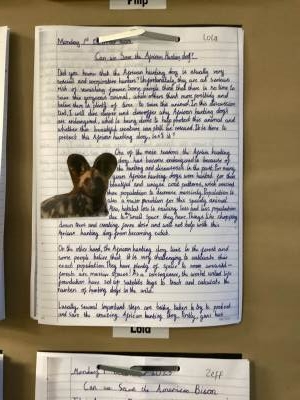 Philip
Monday 1st
Lola
Can we Save the African Hunting dog?
Did you know that the African hunting dog is actually very
social and cooperative hunter? Unfortunately, they are at serious
risk of vanishing forever. Some people think that there is no time to
save this gorgeous animal, while others think more positively and
believe there is plenty of time to save the animal. In this discussion
text, I will dive deeper and discover why African hunting dogs
are endangered, what is being done to help protect this animal and
whether this beautiful creature can still be rescued. Is it time to
protect this African hunting dog, isn't it?
One of the main reasons the African hunting
dog has become endangered is because of
the hunting and decreases in the past. For many
years African hunting dogs were hunted for their
beautiful and unique coat patterns, which caused
their population to decrease massively. Population is
also a main problem for this species. Another
key, habitat loss is making less and less population
due to small space they have. Things like chopping
down trees and creating farms does and will not help with the
African hunting dog from becoming extinct.
On the other hand, the African hunting dog lives in the forest and
some people believe that it is very challenging to estimate this
exact population. They have plenty of space to roam around
forests are massive spaces. As a consequence, the world wildlife
foundation have set up satellite tags to track and calculate the
number of hunting dogs in the wild.
Luckily, several important steps are being taken to try to protect
and save the amazing African hunting dog. Firstly, laws have
Lola
Monday
Zeff
Can we Save the American Bison